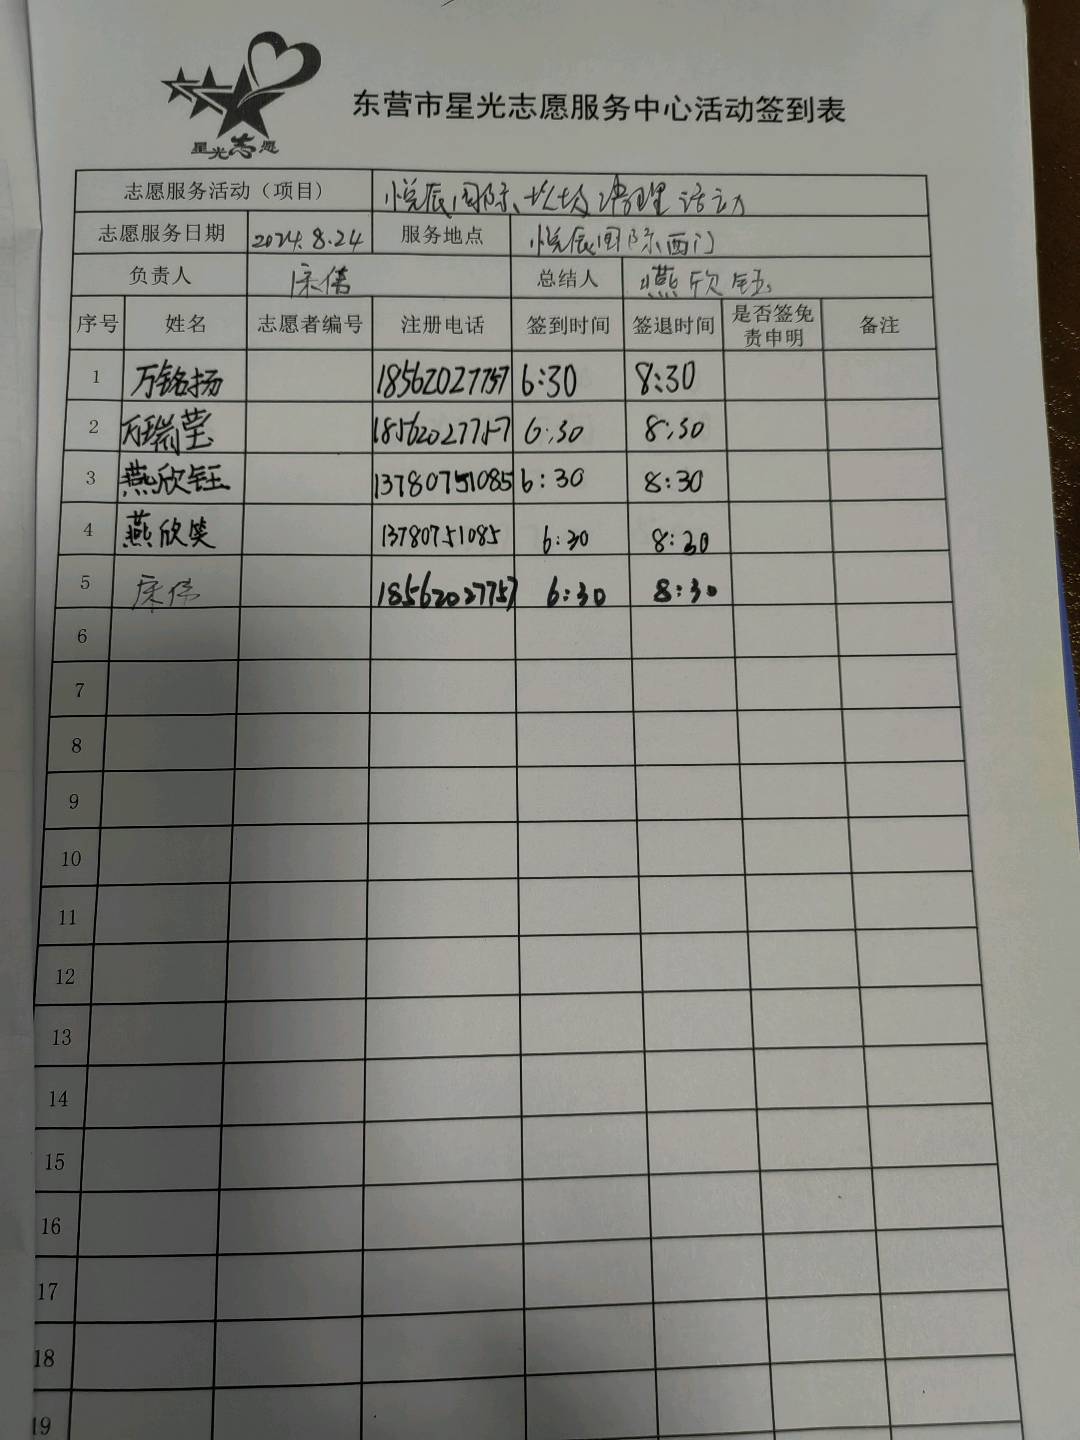 星光志愿
东营市星光志愿服务中心活动签到表
志愿服务活动（项目） 悦辰国际垃圾清理活动
志愿服务日期 2024.8.24 服务地点 悦辰国际西门
负责人 总结人 燕欣钰
序号 姓名 志愿者编号 注册电话 签到时间 签退时间 是否签免责申明 备注
1 万铭扬 18562027757 6:30 8:30
2 万瑞莹 18562027757 6:30 8:30
3 燕欣钰 13780751085 6:30 8:30
4 燕欣笑 13780751085 6:30 8:30
5 18562027757 6:30 8:30
6
7
8
9
10
11
12
13
14
15
16
17
18
19